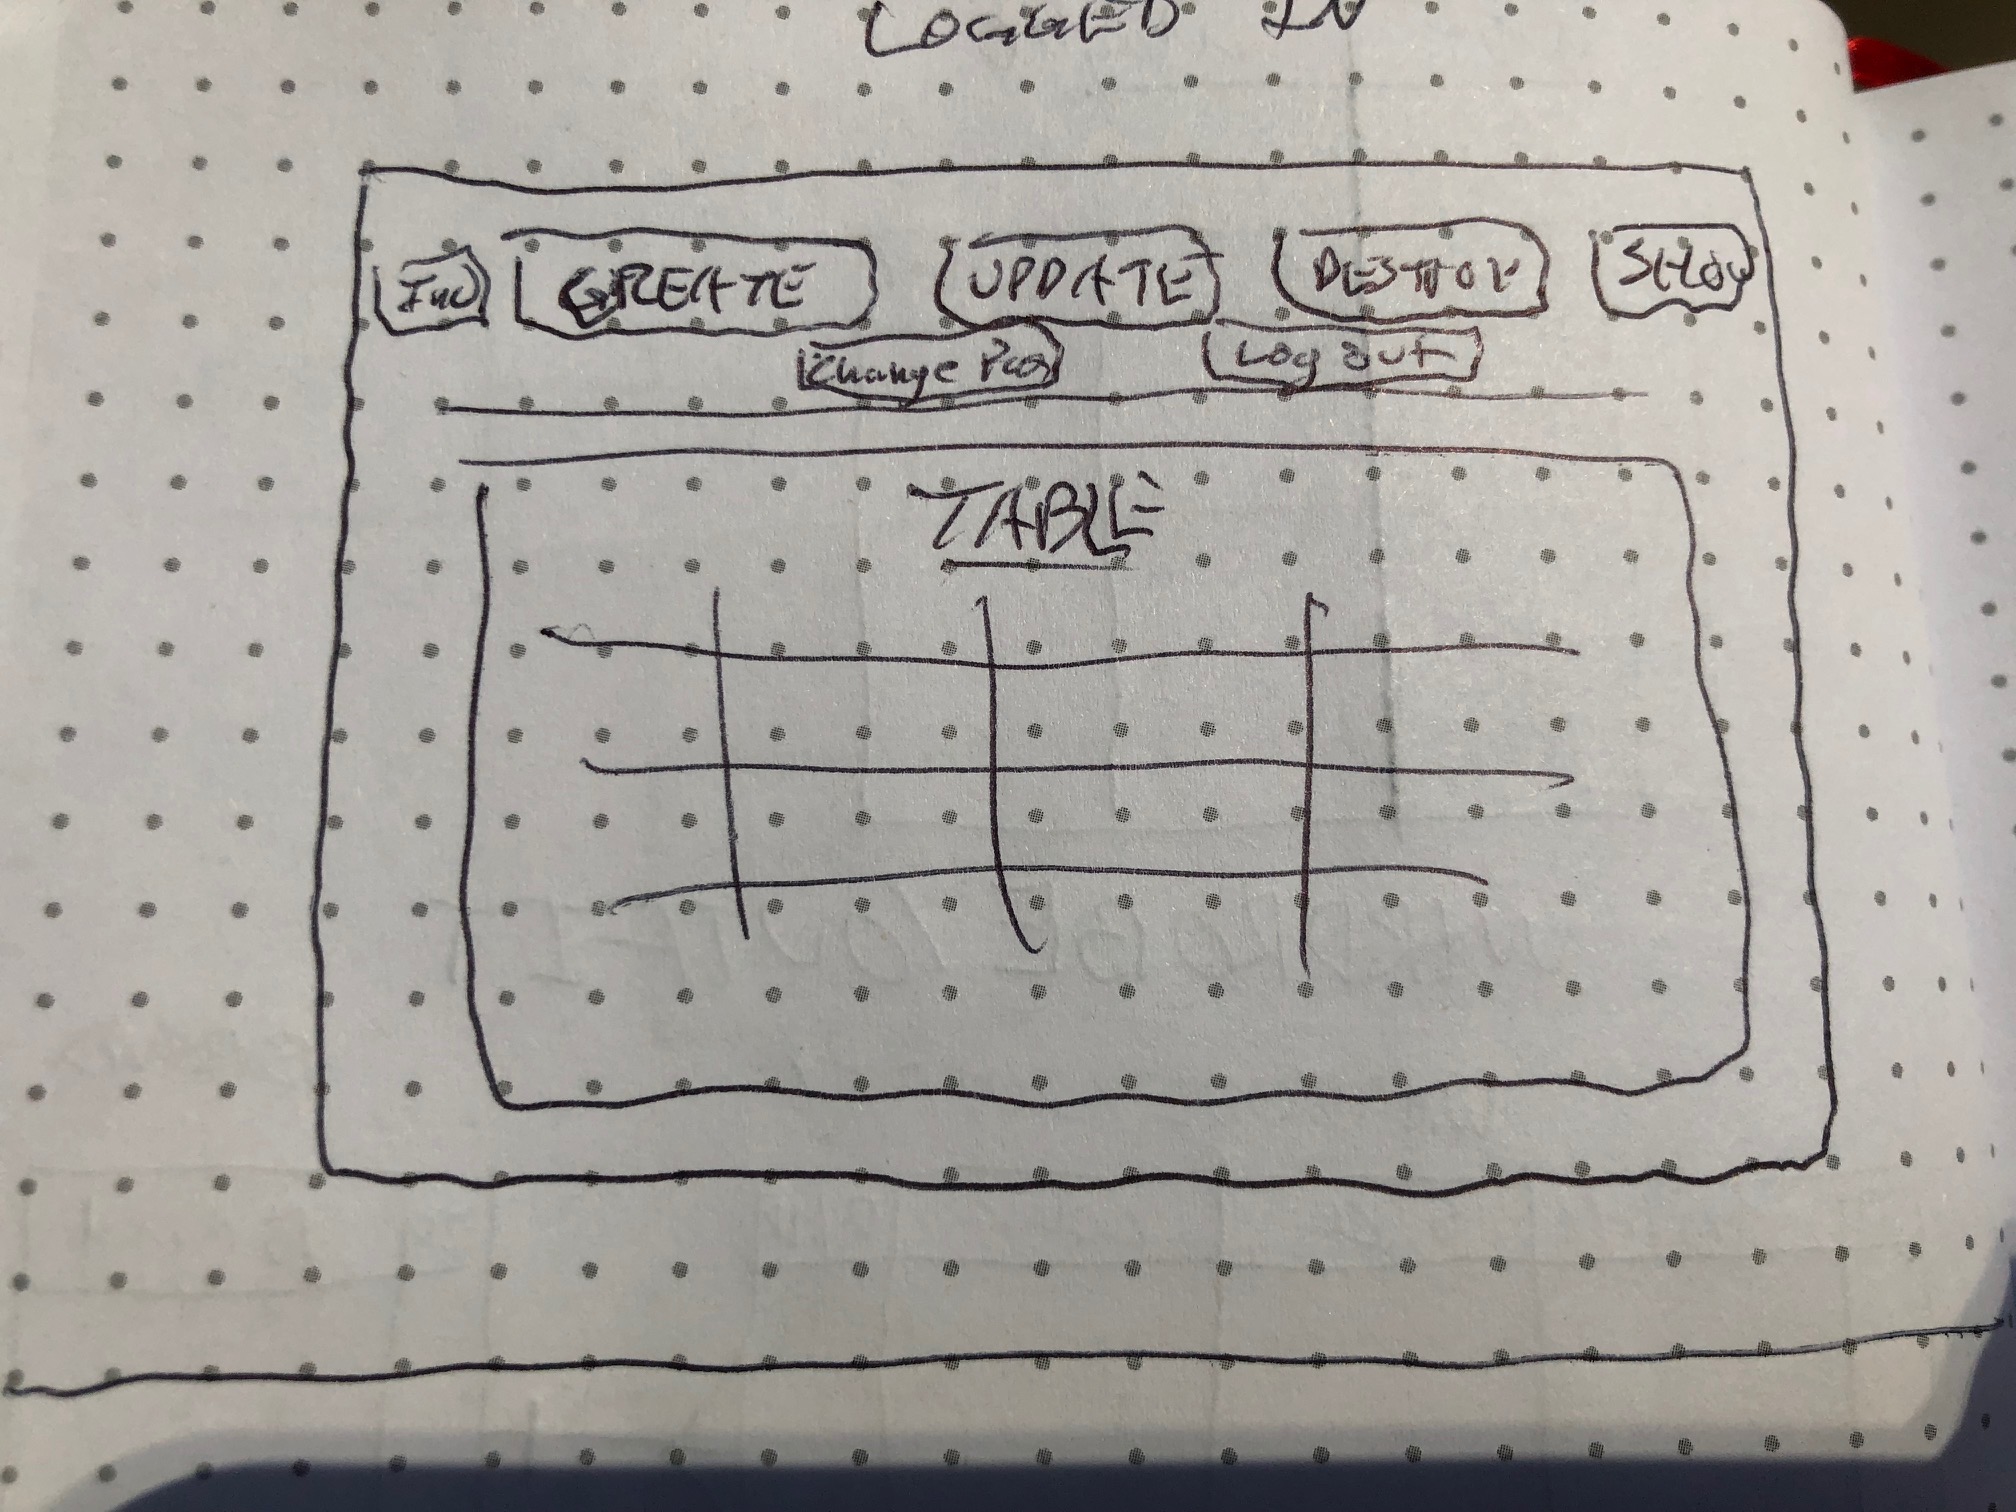 LOGGED IN
Ind CREATE UPDATE DESTROY SHOW
Change Pas Log out
TABLE